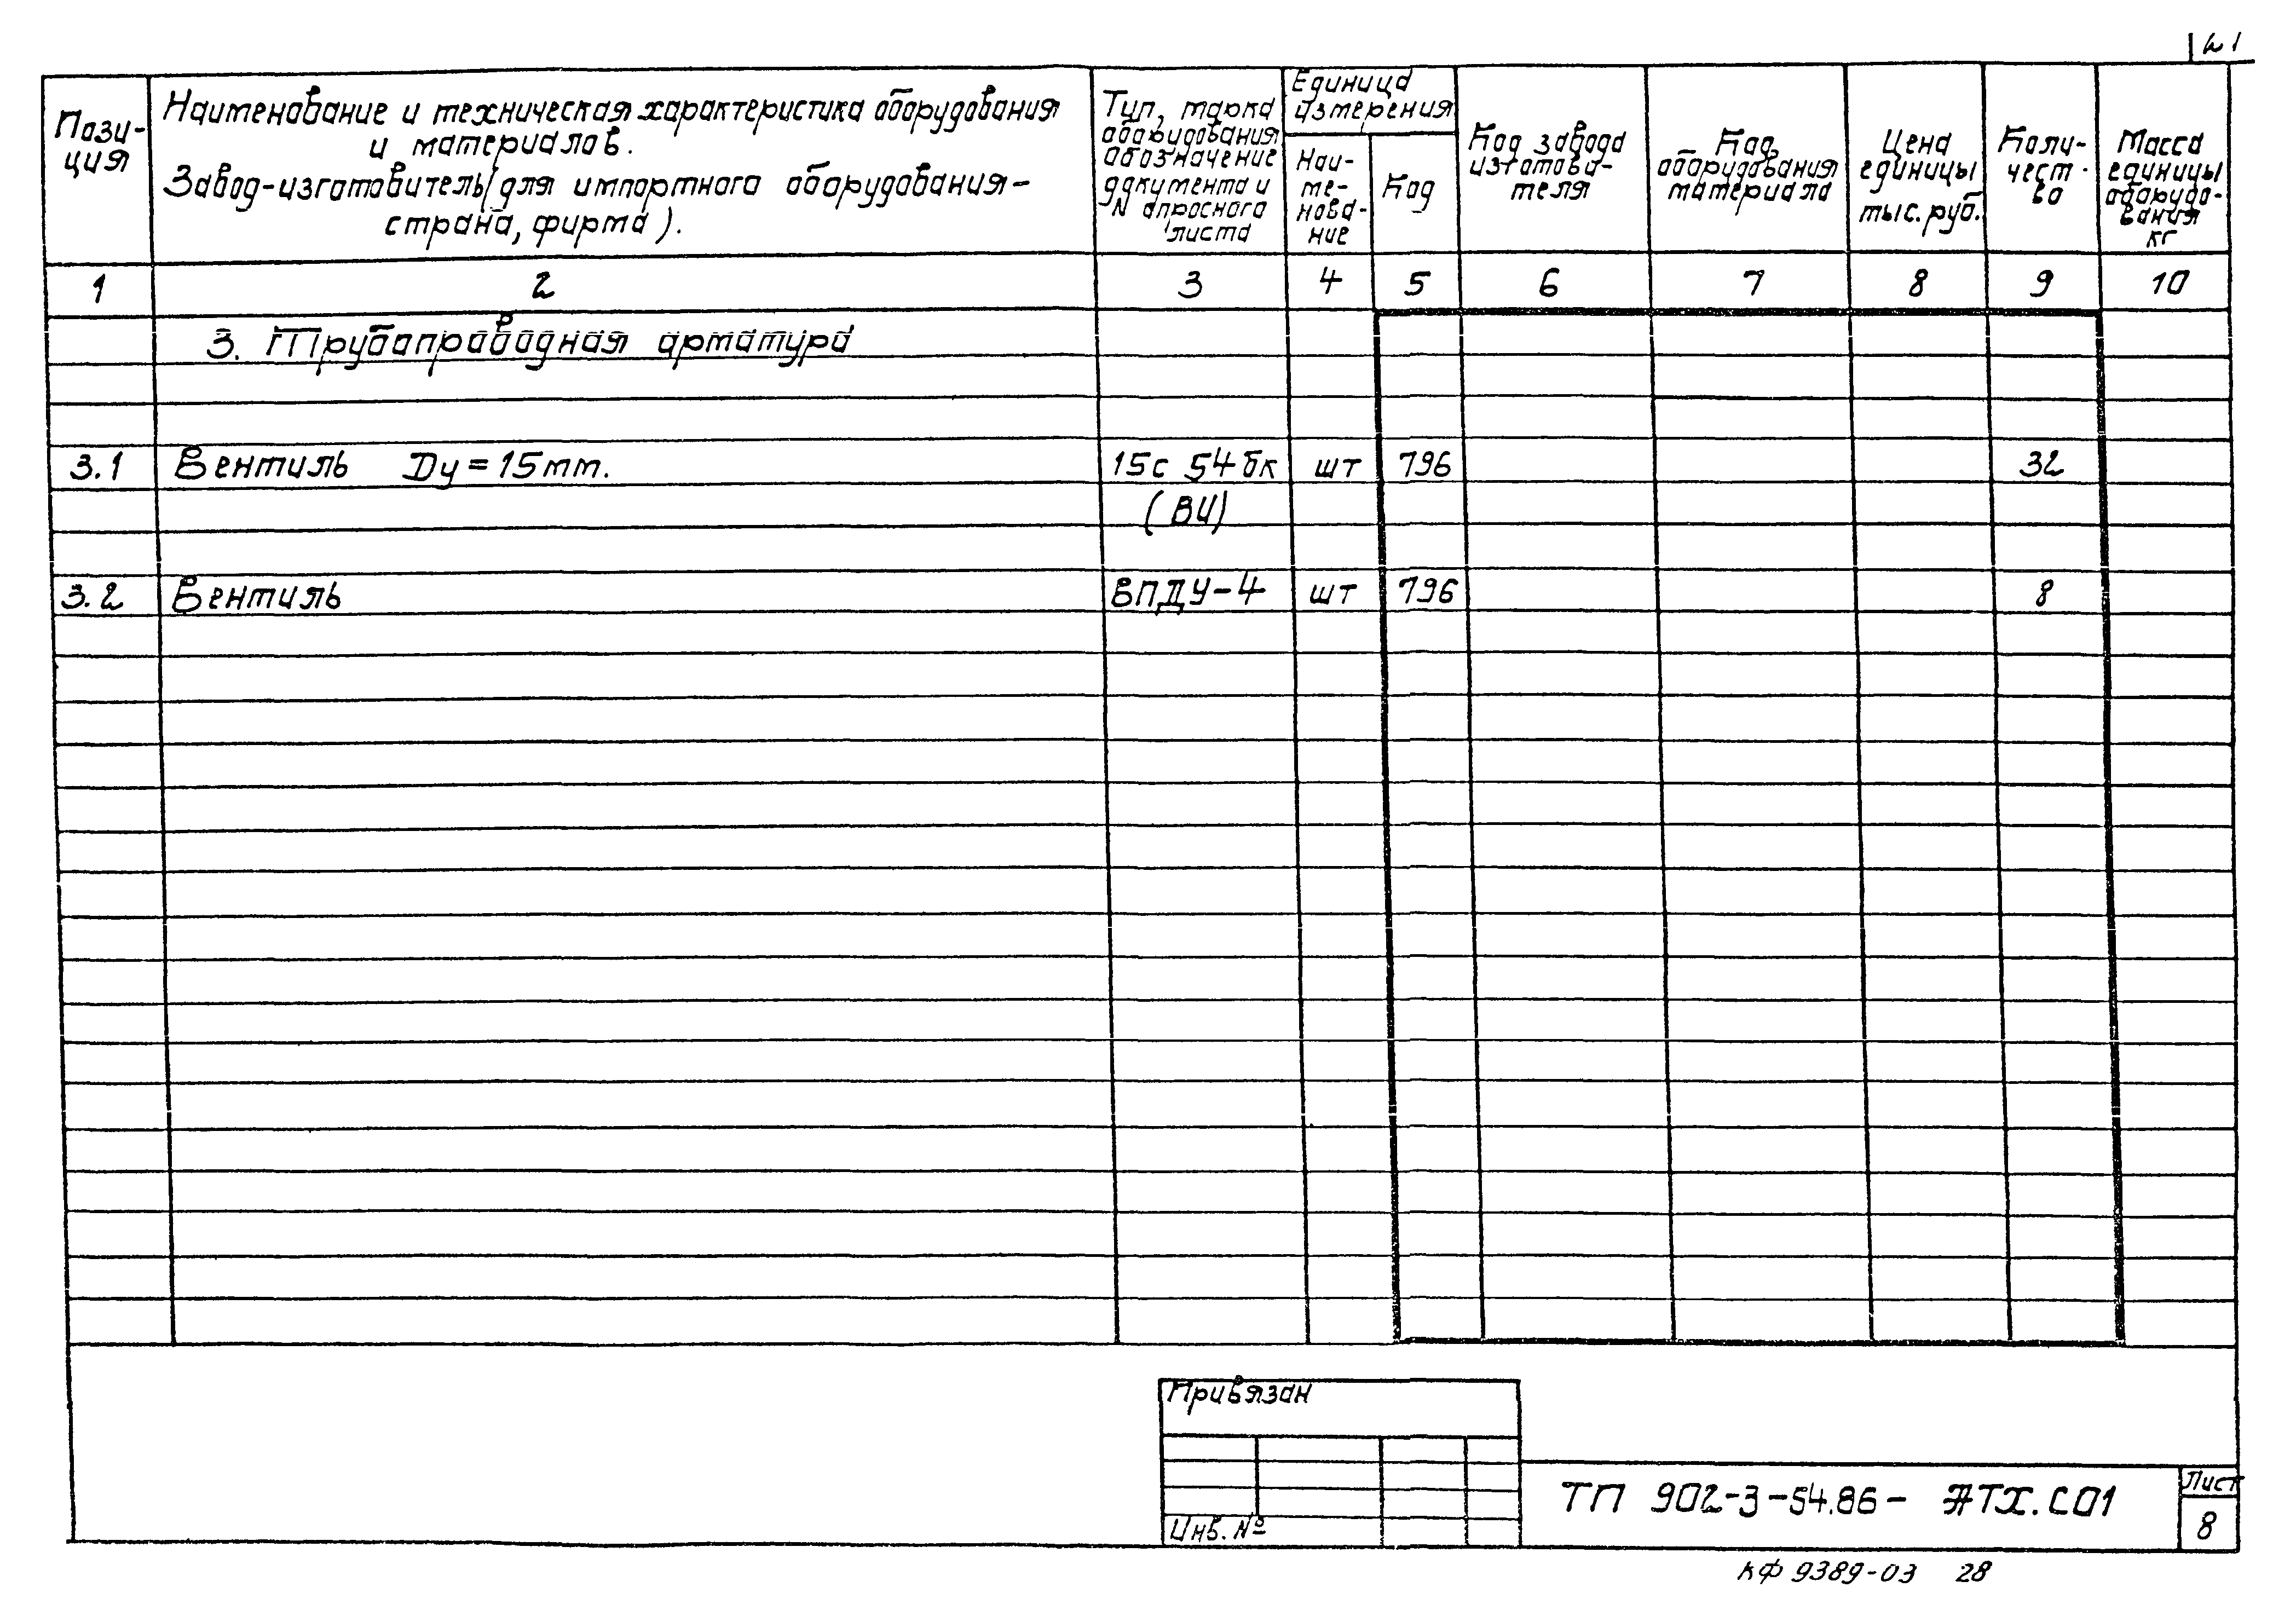 Пози-
ция
Наименование и техническая характеристика оборудования
и материалов.
Завод-изготовитель (для импортного оборудования-
страна, фирма).
Тип, марка
оборудования
обозначение
документа и
N опросного
листа
Единица
измерения
Наи-
ме-
нова-
ние
Код
Код завода
изготови-
теля
Код
оборудования
материала
Цена
единицы
тыс. руб.
Коли-
чест-
во
Масса
единицы
оборудо-
вания
кг
1 2 3 4 5 6 7 8 9 10
3. Трубопроводная арматура
3.1 Вентиль Ду = 15мм. 15с 54 бк шт 796 32
(ВИ)
3.2 Вентиль ВПДУ-4 шт 796 8
Привязан
Инв. №
ТП 902-3-54.86- АТХ.СО1
Лист
8
КФ 9389-03 28